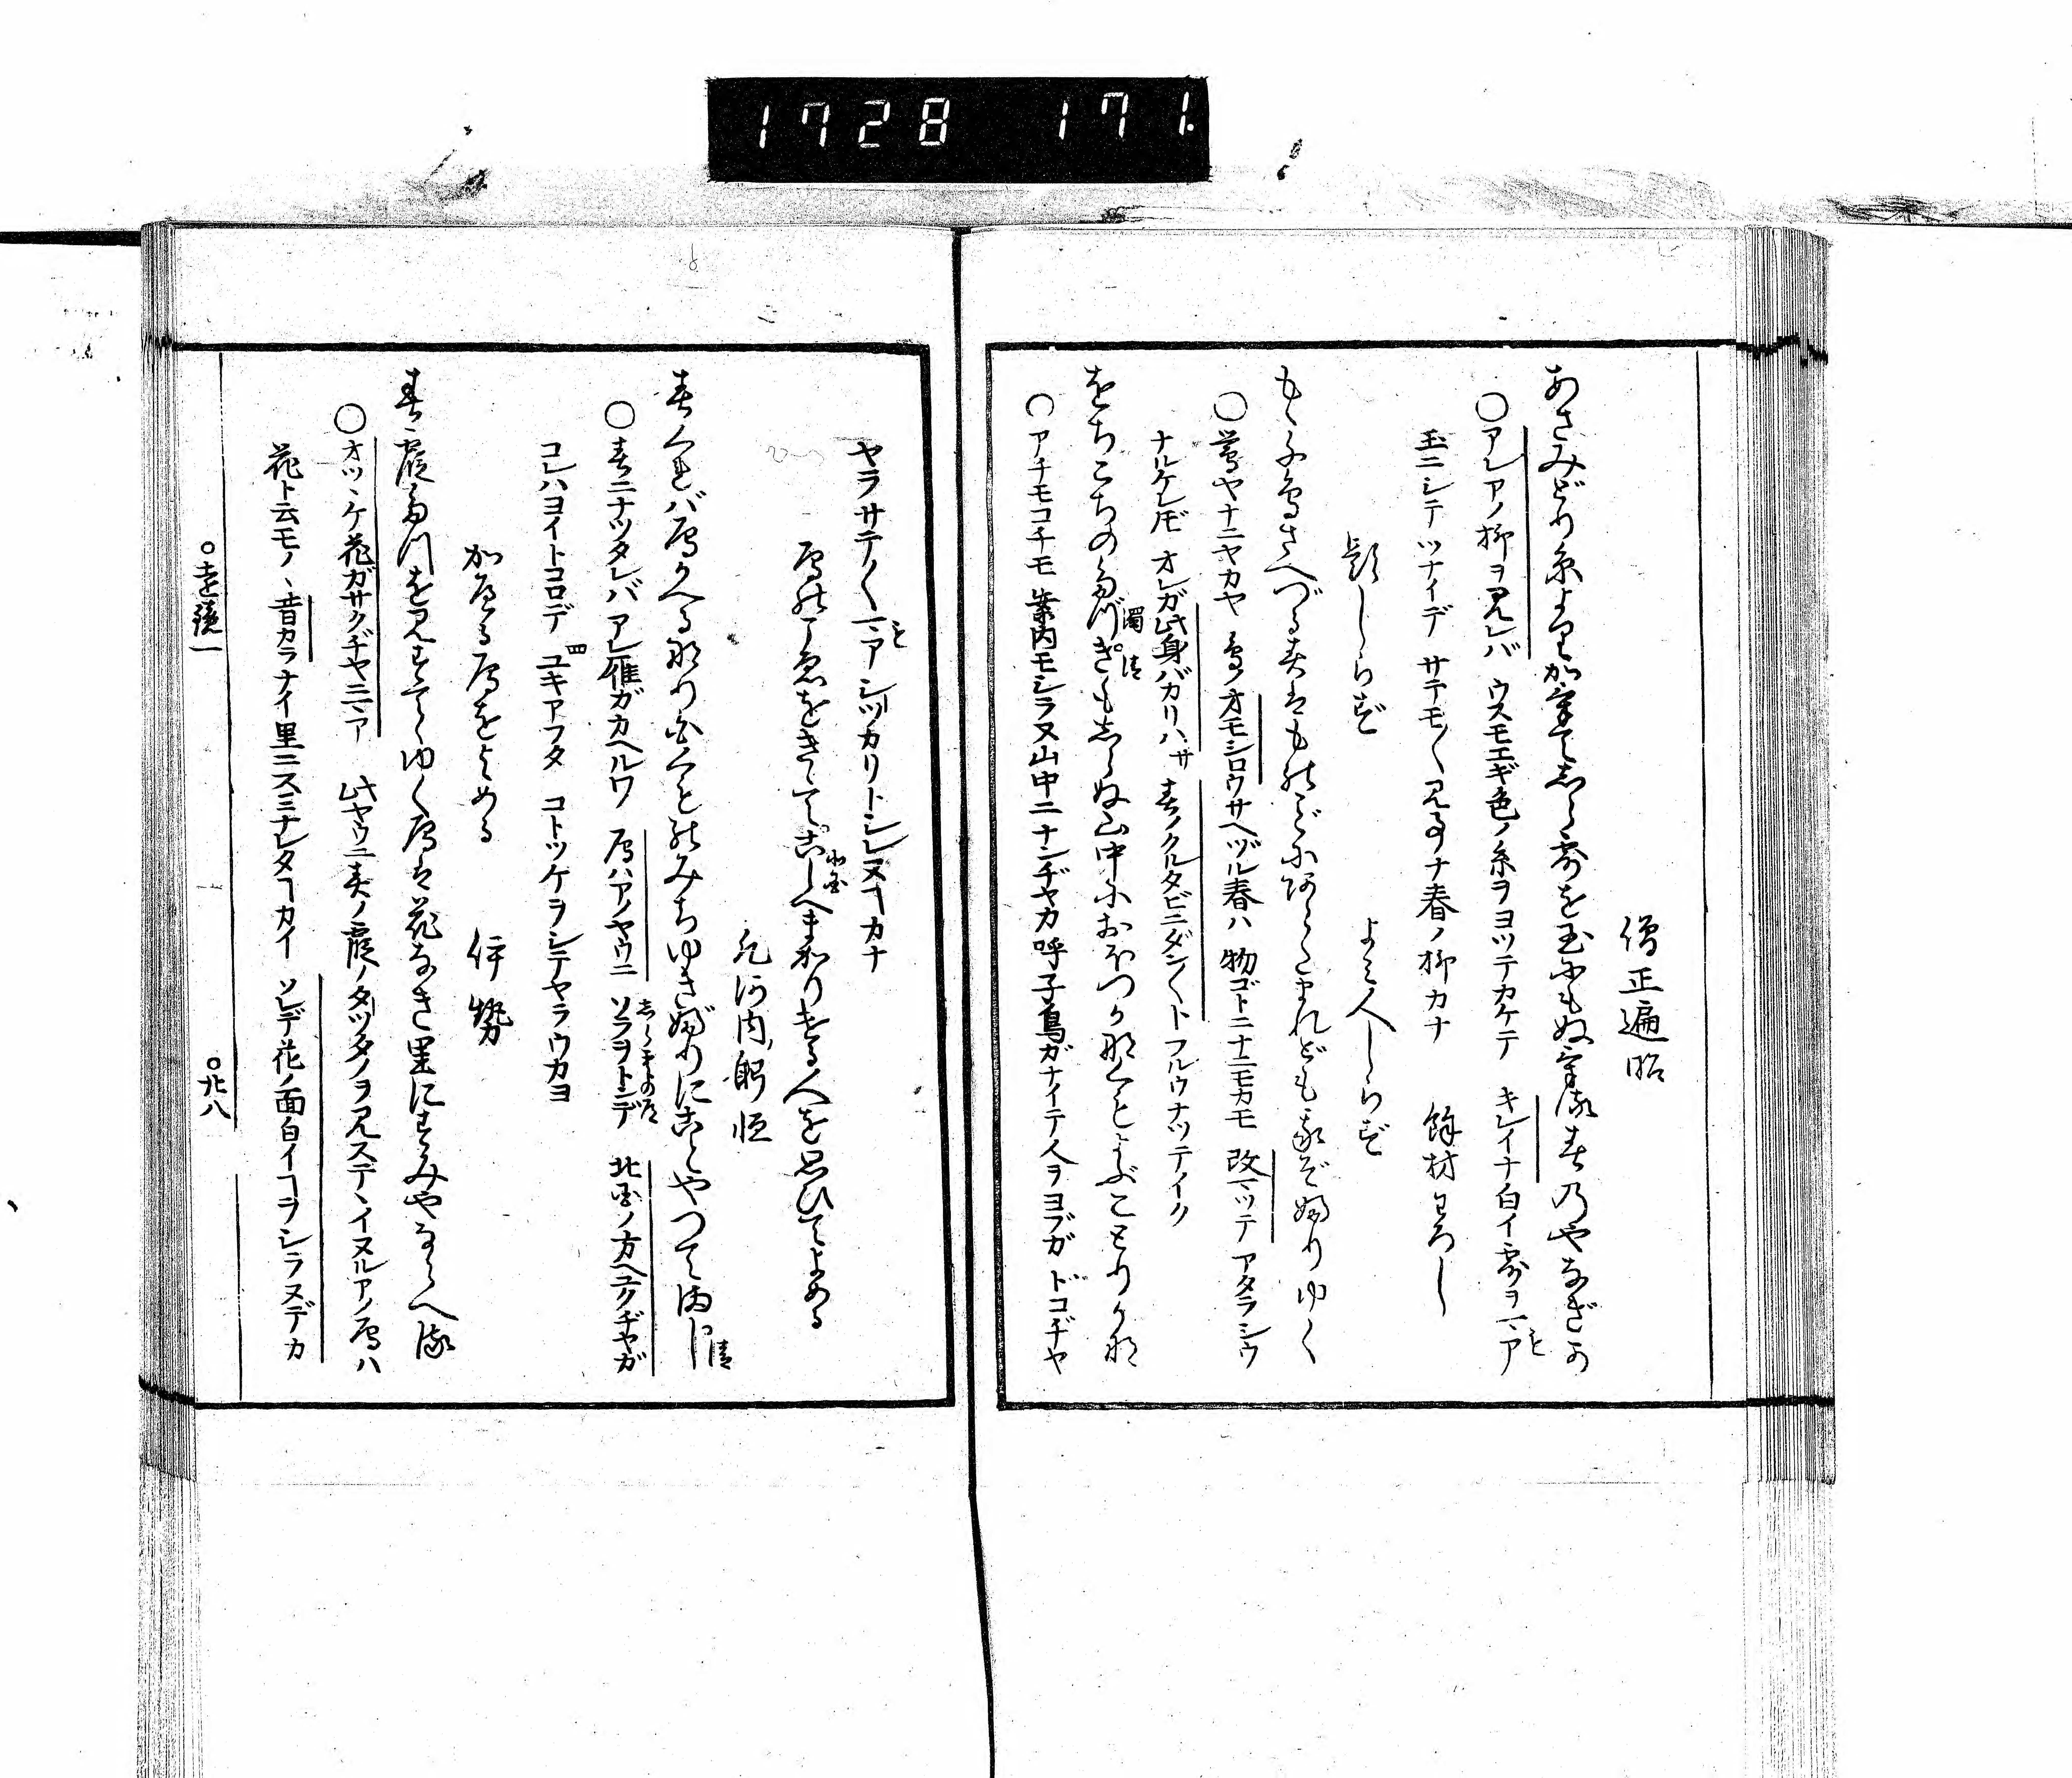 1728 171
僧正遍昭
あさみどり糸よりかけてしら露を玉にもぬける春のやなぎか
○アレアノ柳ヲ見レバ ウスモエギ色ノ糸ヲヨツテカケテ キレイナ白イ露ヲマア
玉ニシテツナイデ サテモ〱見事ナ春ノ柳カナ 餘材わろし
題しらず よみ人しらず
もゝ千鳥さへづる春はものごとにあらたまれども我ぞふりゆく
○鶯ヤナニヤカヤ 鳥ノオモシロウサヘヅル春ハ 物ゴトニナニモカモ 改マツテ アタラシウ
ナルケレドモ オレガ此身バカリハサ 春ノクルタビニダン〱トフルウナツテイク
をちこちのたづきもしらぬ山中におぼつかなくもよぶこどりかな
濁 清
○アチモコチモ 案内モシラヌ山中ニナンヂヤカ呼子鳥ガナイテ人ヲヨブガ ドコヂヤ
ヤラサテ〱マアシツカリトシレヌヿカナ
鴈のこゑをきゝてこしへまかりける人を思ひてよめる
凡河内躬恒
春くればかりかへるなり白雲のみちゆきぶりにことやつてまし
清
○春ニナツタレバアレ雁ガカヘルワ 鴈ハアノヤウニ ソラヲトンデ 北国ノ方ヘユクヂヤガ
コレハヨイトコロデ ユキアフタ コトツケヲシテヤラウカヨ
四
帰る鴈をよめる 伊勢
春霞たつを見すてゝゆく鴈は花なき里にすみやならへる
○オツヽケ花ガサクヂヤニマア 此ヤウニ春ノ霞ノタツタノヲ見ステヽイヌルアノ鴈ハ
花ト云モノヽ昔カラナイ里ニスミナレタヿカイ ソレデ花ノ面白イヿヲシラヌデカ
○遠鏡一 ○廿八